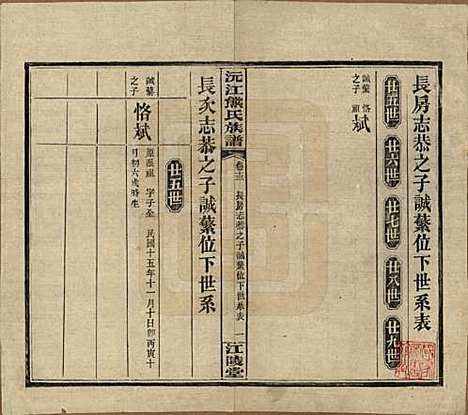 長房志恭之子誠蘩位下世系表
廿五世 廿六世 廿七世 廿八世 廿九世
誠蘩之子 恪斌
沅江熊氏族譜
卷十三 長房志恭之子誠蘩位下世系表 一
江陵堂
長次志恭之子誠蘩位下世系
廿五世
誠蘩之子 恪斌
字子金 民國十五年十一月十日卽丙寅十
月初六戌時生